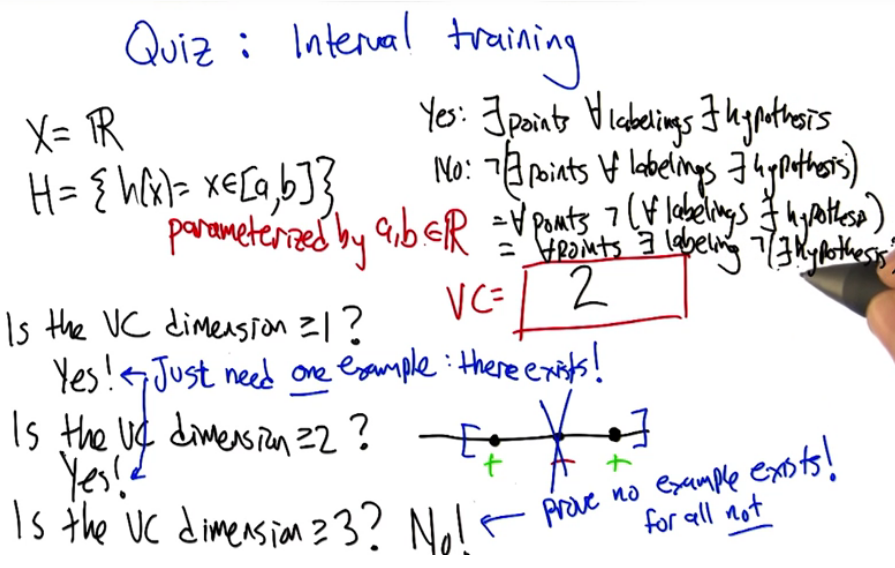 Quiz: Interval training
X= ℝ
H= { h(x)= x∈[a,b]}
parameterized by a,b ∈ℝ
Yes: ∃points ∀labelings ∃ hypothesis
No: ¬(∃points ∀ labelings ∃ hypothesis)
=∀points ¬(∀ labelings ∃ hypothesis)
= ∀points ∃ labeling ¬(∃ hypothesis)
VC= 2
Is the VC dimension ≥1?
Yes! ← Just need one example: there exists!
Is the VC dimension ≥2?
Yes!
[ ]
+ - +
Is the VC dimension ≥3? No! ← prove no example exists!
for all not